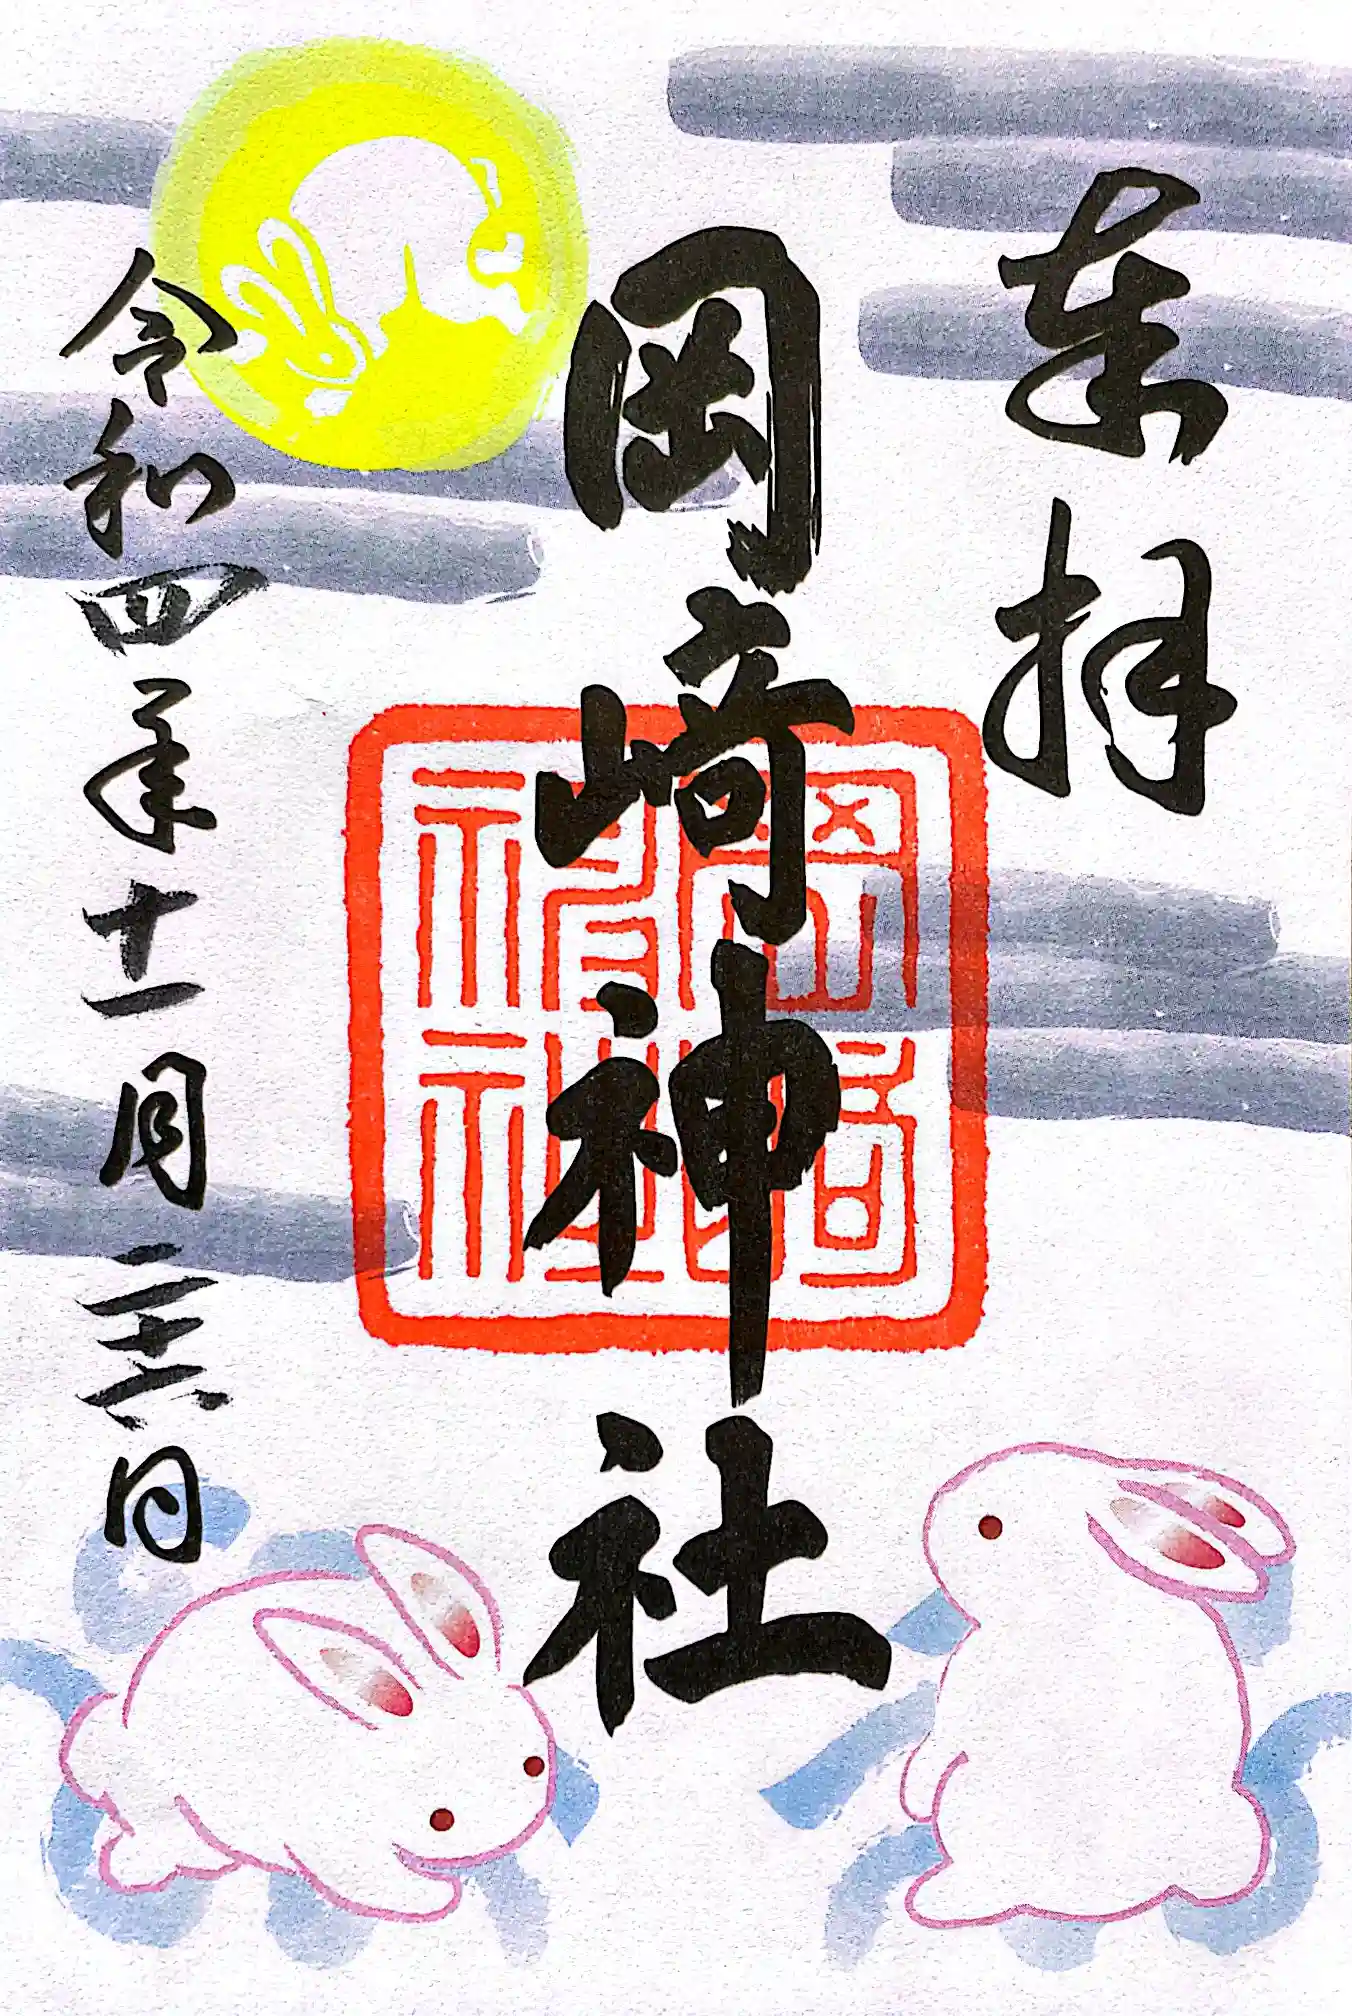 奉拝
岡崎神社
令和四年十一月二十六日
岡崎
神社